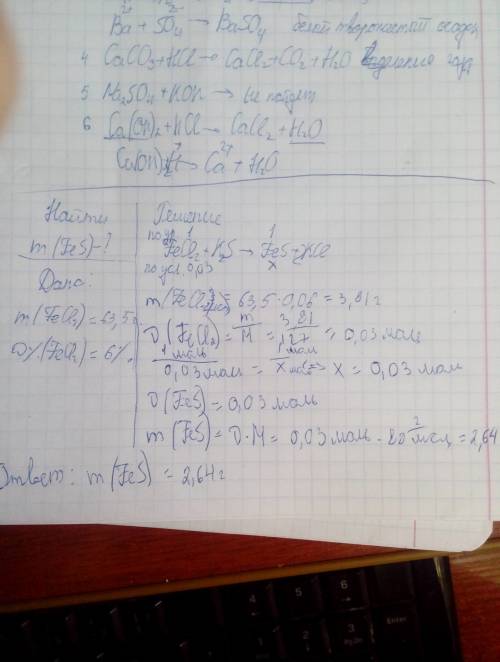 Ba²⁺ + SO₄²⁻ → BaSO₄ белый творожистый осадок
4 CaCO₃ + HCl → CaCl₂ + CO₂ + H₂O выделение газа
5 Na₂SO₄ + KOH → не пойдет
6 Ca(OH)₂ + HCl → CaCl₂ + H₂O
→ Ca²⁺ + H₂O
Найти
m(FeS) - ?
Дано:
m(FeCl₂) = 63,5г
(FeCl₂) = 6%
Решение
по ур. 1 1
FeCl₂ + K₂S → FeS + 2KCl
по усл. 0,03 x
m(FeCl₂) = 63,5 · 0,06 = 3,81 г
ν(FeCl₂) = m/M = 3,81/127 = 0,03 моль
1 моль/0,03 моль = 1 моль/x моль => x = 0,03 моль
ν(FeS) = 0,03 моль
m(FeS) = ν · M = 0,03 моль · г/моль = 2,64
Ответ: m(FeS) = 2,64 г
4
5
6
1
2
3
Enter